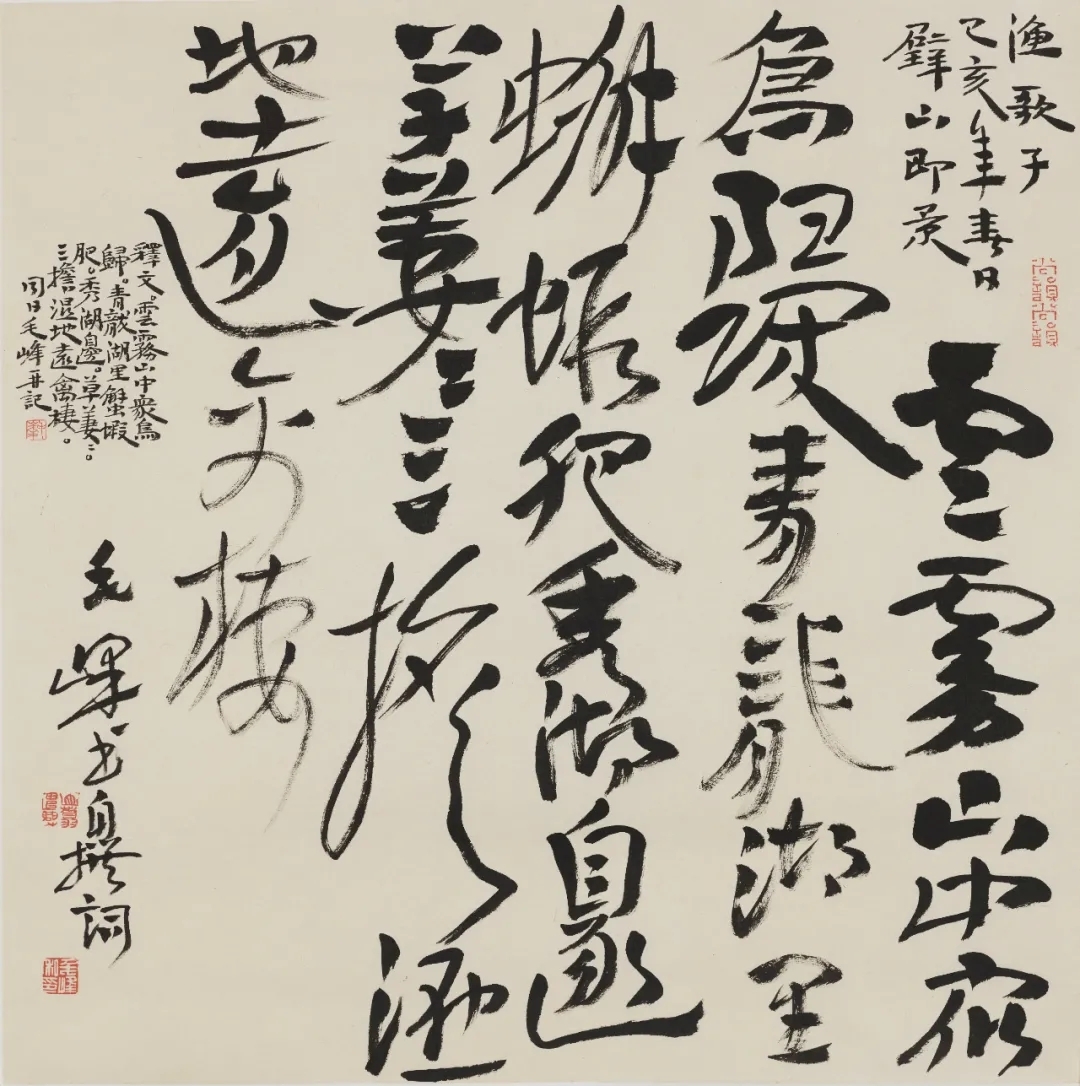 漁歌子
己亥年春日
璧山即景
雲霧山中衆
鳥歸青龍湖里
蠏蝦肥秀湖邊
草萋〻三擔濕
地遠禽棲
釋文。雲霧山中衆鳥
歸。青龍湖里蟹蝦
肥。秀湖邊。草萋〻。
三擔湿地遠禽棲。
同日毛峰再記
毛峰书自撰詞